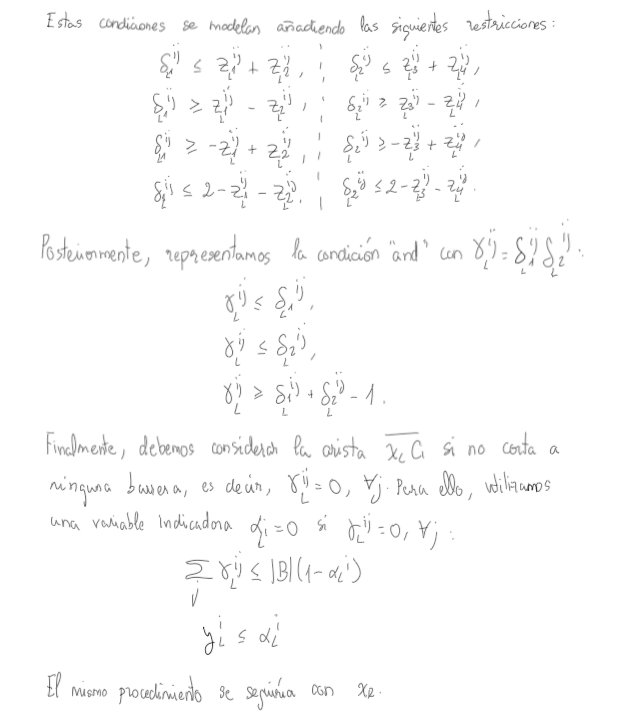 Estas condiciones se modelan añadiendo las siguientes restricciones:
δ_{L1}^{ij} ≤ z_{L1}^{ij} + z_{L2}^{ij}, | δ_{L2}^{ij} ≤ z_{L3}^{ij} + z_{L4}^{ij},
δ_{L1}^{ij} ≥ z_{L1}^{ij} - z_{L2}^{ij}, | δ_{L2}^{ij} ≥ z_{L3}^{ij} - z_{L4}^{ij},
δ_{L1}^{ij} ≥ -z_{L1}^{ij} + z_{L2}^{ij}, | δ_{L2}^{ij} ≥ -z_{L3}^{ij} + z_{L4}^{ij},
δ_{L1}^{ij} ≤ 2 - z_{L1}^{ij} - z_{L2}^{ij}. | δ_{L2}^{ij} ≤ 2 - z_{L3}^{ij} - z_{L4}^{ij}.
Posteriormente, representamos la condición "and" con γ_L^{ij} = δ_{L1}^{ij} δ_{L2}^{ij}:
γ_L^{ij} ≤ δ_{L1}^{ij},
γ_L^{ij} ≤ δ_{L2}^{ij},
γ_L^{ij} ≥ δ_{L1}^{ij} + δ_{L2}^{ij} - 1.
Finalmente, debemos considerar la arista \overline{x_L C_i} si no corta a
ninguna barrera, es decir, γ_L^{ij} = 0, ∀j. Para ello, utilizamos
una variable indicadora α_L^i = 0 si γ_L^{ij} = 0, ∀j:
∑_j γ_L^{ij} ≤ |B|(1 - α_L^i)
y_L^i ≤ α_L^i
El mismo procedimiento se seguiría con x_R.